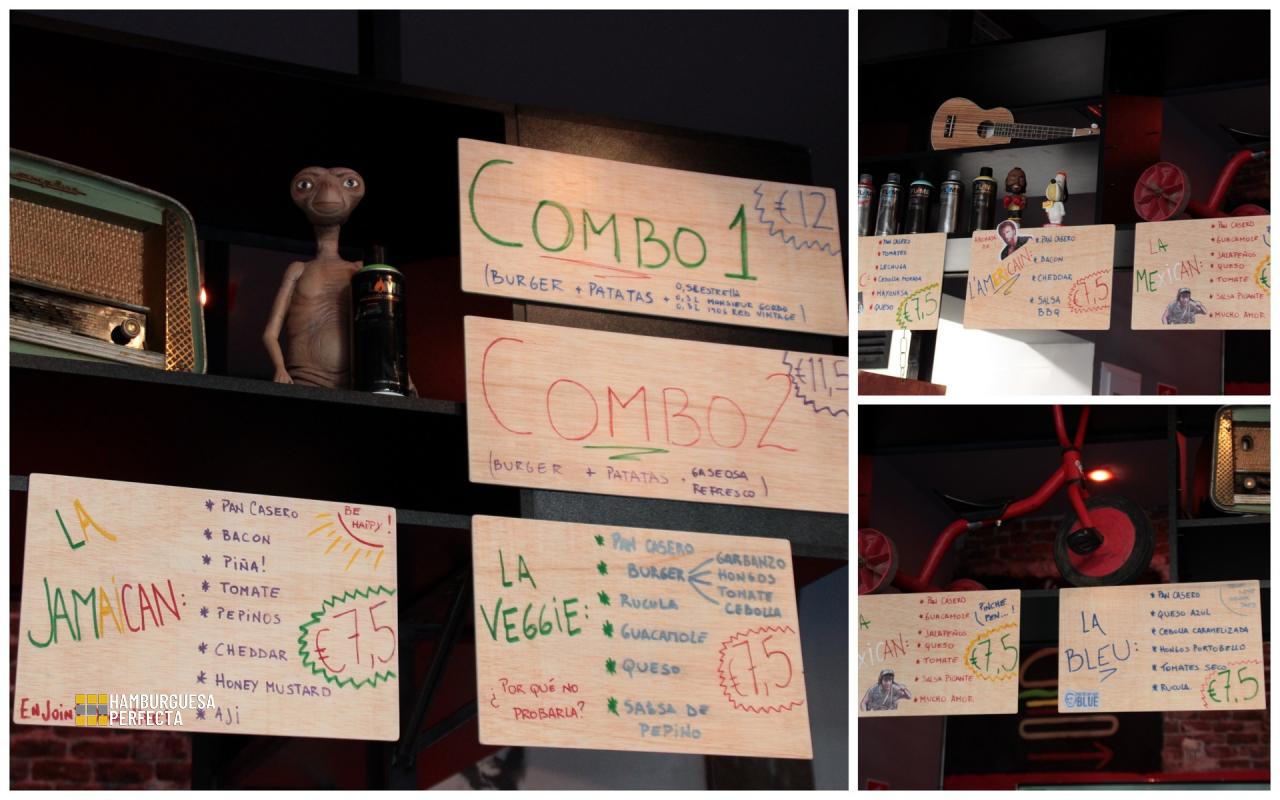 COMBO 1
€12
(BURGER + PATATAS +
0,5L ESTRELLA
0,3L MONSIEUR GORDO
0,3L 1906 RED VINTAGE )
COMBO 2
€11,5
(BURGER + PATATAS +
GASEOSA
REFRESCO )
LA
JAMAICAN:
* PAN CASERO
* BACON
* PIÑA!
* TOMATE
* PEPINOS
* CHEDDAR
* HONEY MUSTARD
* AJÍ
BE
HAPPY!
€7,5
EnJoin
HAMBURGUESA
PERFECTA
LA
VEGGIE:
* PAN CASERO
* BURGER
GARBANZO
HONGOS
TOMATE
CEBOLLA
* RUCULA
* GUACAMOLE
* QUESO
* SALSA DE
PEPINO
€7,5
¿POR QUÉ NO
PROBARLA?
* PAN CASERO
* TOMATES
* LECHUGA
* CEBOLLA MORADA
* MAYONESA
* QUESO
€7,5
L'AMERICAIN:
* PAN CASERO
* BACON
* CHEDDAR
* SALSA
BBQ
€7,5
LA
MEXICAN:
* PAN CASERO
* GUACAMOLE
* JALAPEÑOS
* QUESO
* TOMATE
* SALSA PICANTE
* MUCHO AMOR
XICAN:
* PAN CASERO
* GUACAMOLE
* JALAPEÑOS
* QUESO
* TOMATE
* SALSA PICANTE
* MUCHO AMOR
PINCHE
PEN...!
€7,5
LA
BLEU:
* PAN CASERO
* QUESO AZUL
* CEBOLLA CARAMELIZADA
* HONGOS PORTOBELLO
* TOMATES SECO
* RUCULA
€7,5
BLUE